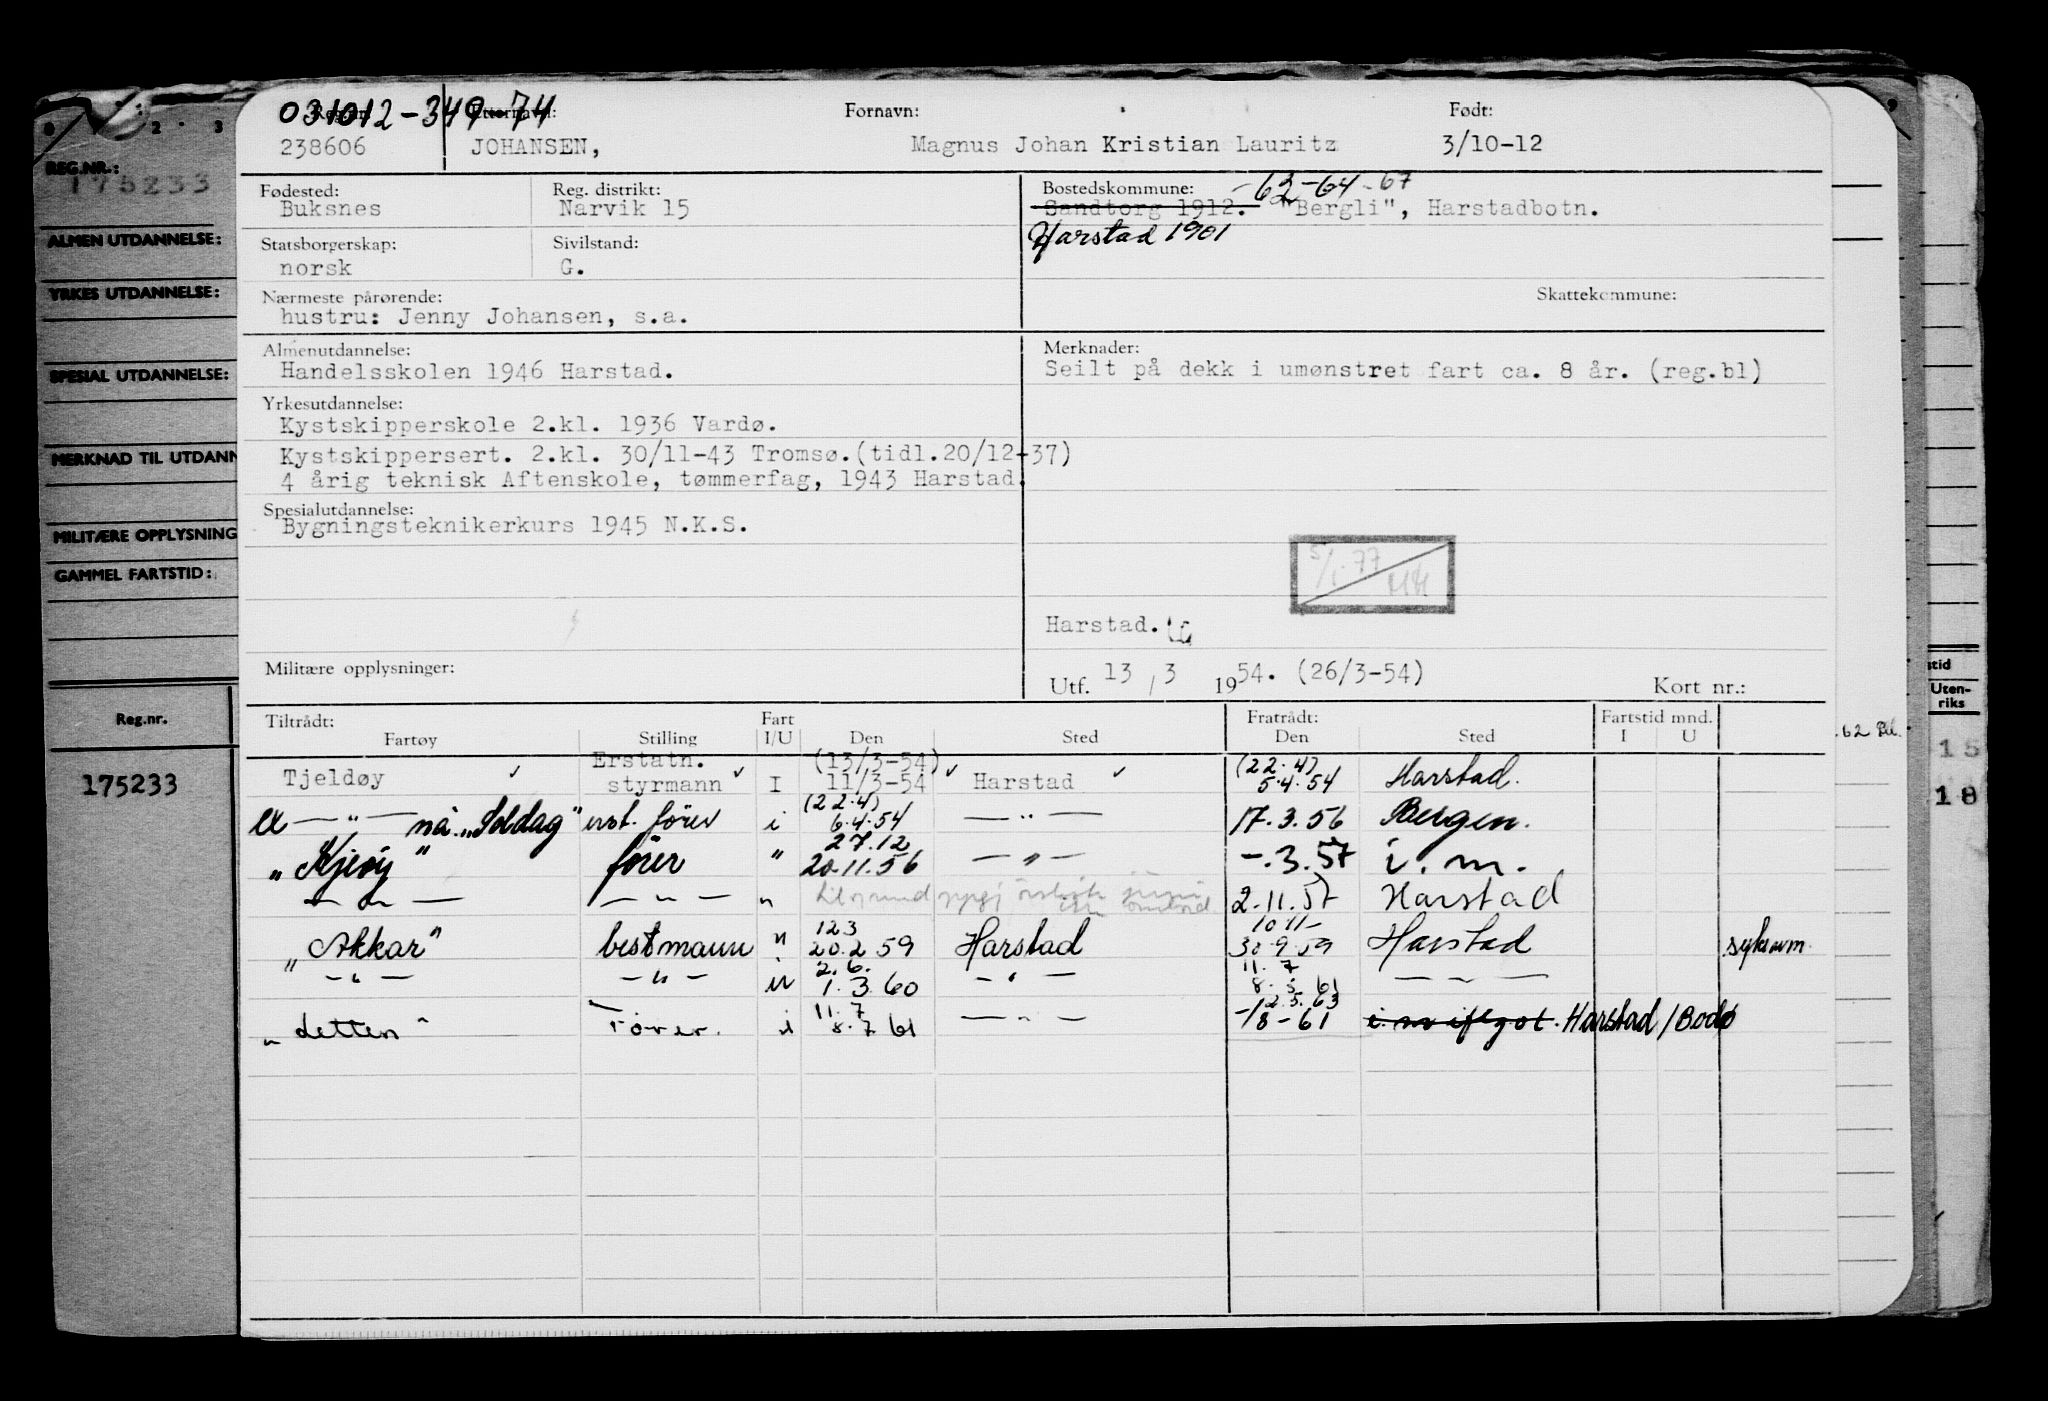 031012-349-74
Reg.nr.: Etternavn: Fornavn: Født:
238606 JOHANSEN, Magnus Johan Kristian Lauritz 3/10-12
Fødested: Reg. distrikt: Bostedskommune: -62-64-67
Buksnes Narvik 15 Sandtorg 1912. "Bergli", Harstadbotn.
Statsborgerskap: Sivilstand: Harstad 1901
norsk G.
Nærmeste pårørende: Skattekommune:
hustru: Jenny Johansen, s.a.
Almenutdannelse: Merknader:
Handelsskolen 1946 Harstad. Seilt på dekk i umønstret fart ca. 8 år. (reg.bl)
Yrkesutdannelse:
Kystskipperskole 2.kl. 1936 Vardø.
Kystskippersert. 2.kl. 30/11-43 Tromsø.(tidl.20/12-37)
4 årig teknisk Aftenskole, tømmerfag, 1943 Harstad.
Spesialutdannelse:
Bygningsteknikerkurs 1945 N.K.S.
5/1-77
Harstad.
Militære opplysninger: Utf. 13 / 3 1954. (26/3-54) Kort nr.:
Tiltrådt: Fart Fratrådt: Fartstid mnd.
Fartøy Stilling I/U Den Sted Den Sted I U
Erstatn. (13/3-54) (22.4)
Tjeldøy styrmann I 11/3-54 Harstad 5.4.54 Harstad.
(22.4)
ex — " — nå "Soldag" erst. fører i 6.4.54 — " — 17.3.56 Bergen.
27.12
"Kjeøy" fører " 20.11.56 — " — -.3.57 i.m.
— " — — " — " 2.11.57 Harstad
12.3 10.11-
"Akkar" bestmann " 20.2.59 Harstad 30.9.59 Harstad sykdom.
2.6. 11.7
— " — — " — 1.3.60 — " — 8.5.61 — " —
11.7 -12.5.63
"Jetten" Fører. i 8.7.61 — " — -/8-61 Harstad/Bodø
REG.NR.:
175233
ALMEN UTDANNELSE:
YRKES UTDANNELSE:
SPESIAL UTDANNELSE:
MERKNAD TIL UTDANN
MILITÆRE OPPLYSNING
GAMMEL FARTSTID:
Reg.nr.
175233
2 3
9
stid
Uten-
riks
.62
15
18